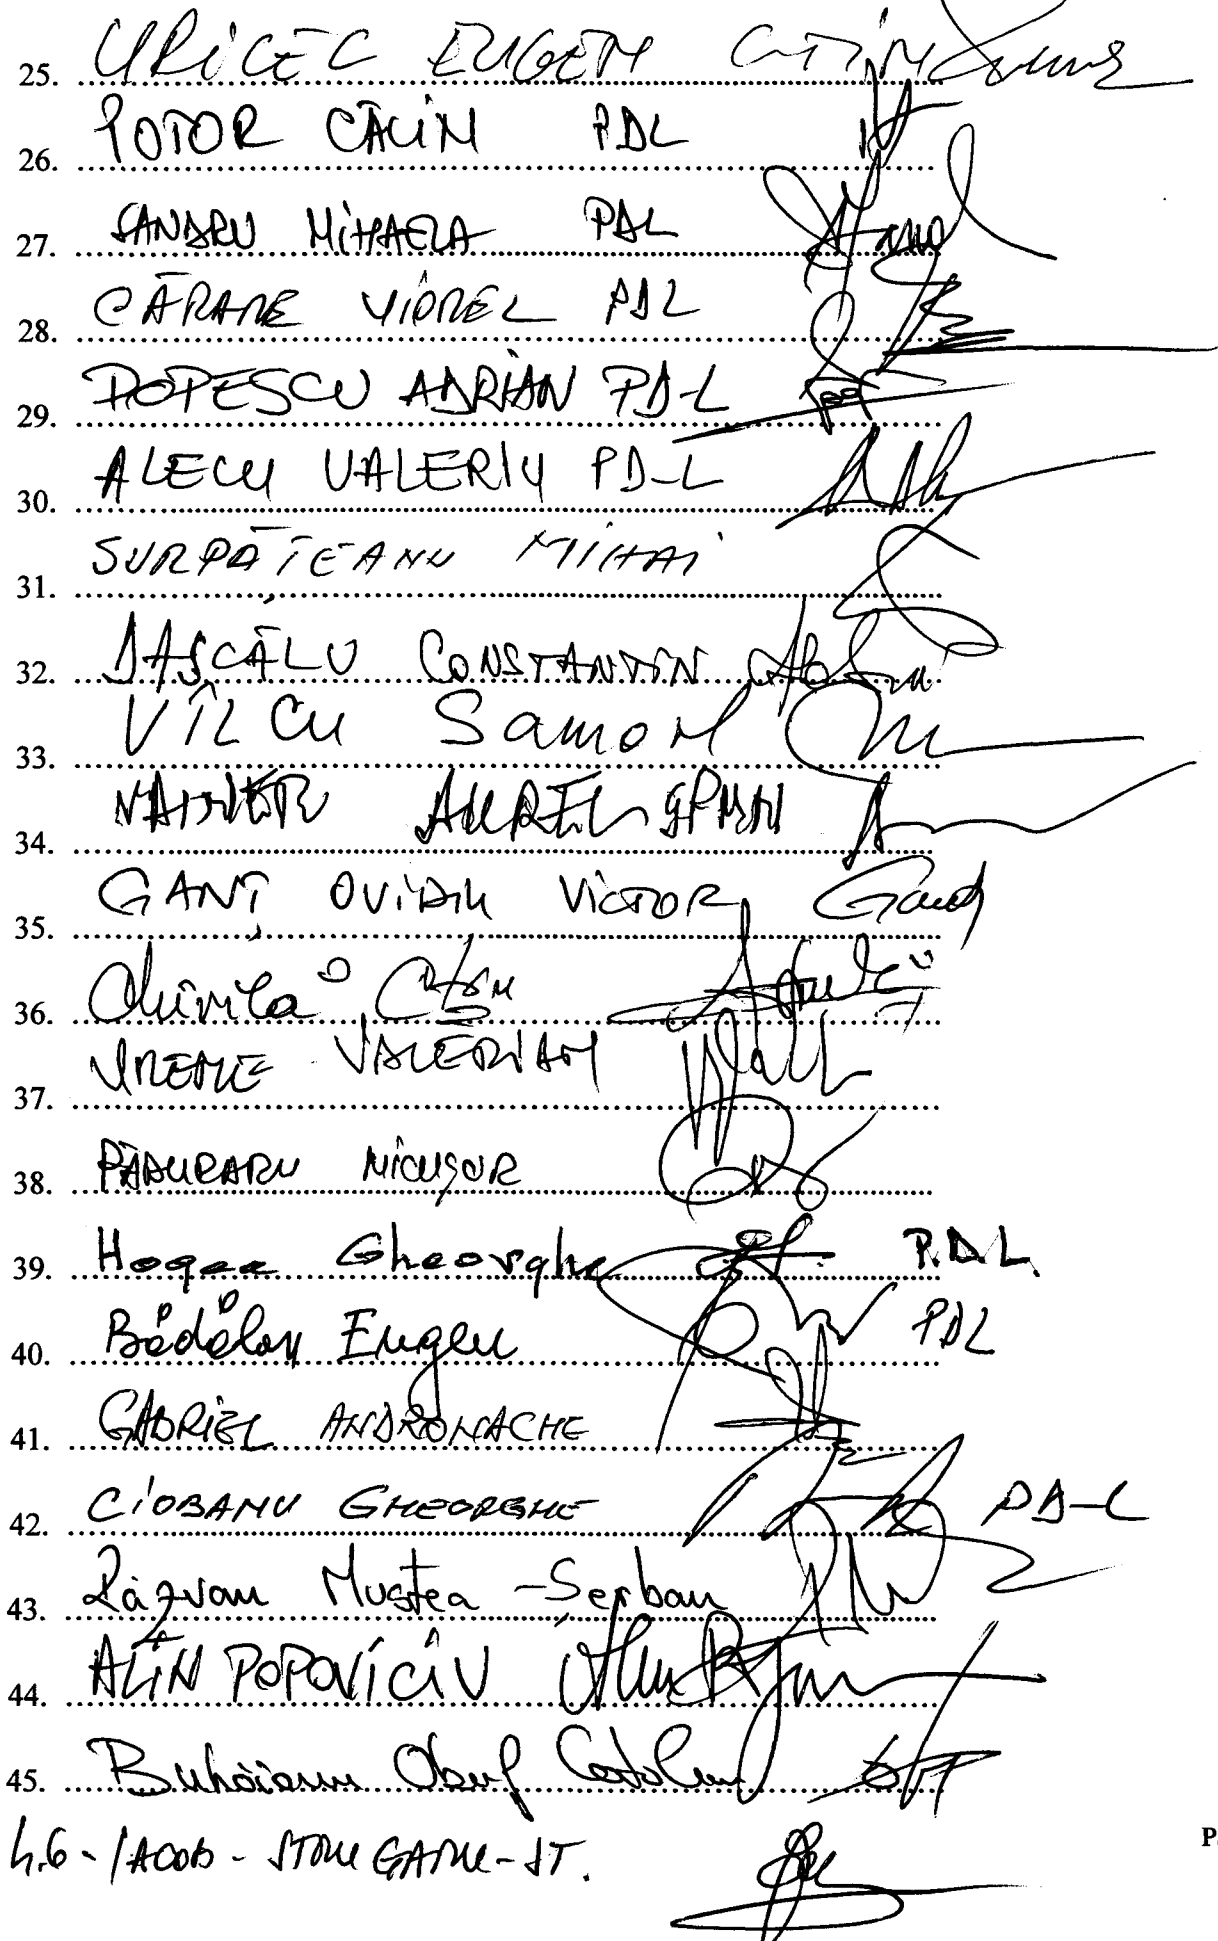 25. URICEC EUGEN
26. POTOR CĂLIN PDL
27. SANDRU MIHAELA PDL
28. CĂRARE VIOREL PDL
29. POPESCU ADRIAN PD-L
30. ALECU VALERIU PD-L
31. SURPĂȚEANU MIHAI
32. DAȘCĂLU CONSTANTIN
33. VÎLCU Samoil
34. AUREL
35. GANȚ OVIDIU VICTOR
36. Chirilă
37. VREME VALERIAN
38. PĂDURARU NICUȘOR
39. Hogea Gheorghe P.D.L.
40. Bădălan Eugen PDL
41. GABRIEL ANDRONACHE
42. CIOBANU GHEORGHE PD-L
43. Răzvan Mustea-Șerban
44. ALIN POPOVICIU
45. Buhăianu Obuf Cătălin
46 - IACOB -